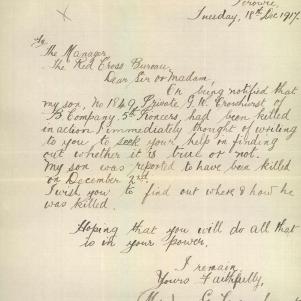 Terowie,
Tuesday, 18th Dec 1917.
To
The Manager,
The Red Cross Bureau,
Dear Sir or Madam,
On being notified that
my son, No 1849, Private J. R. Crowhurst of
B Company, 5th Pioneers, had been killed
in action I immediately thought of writing
to you to seek your help on finding
out whether it is true or not.
My son was reported to have been killed
on December 2nd.
I wish you to find out where & how he
was killed.
Hoping that you will do all that
is in your power.
I remain
Yours Faithfully,